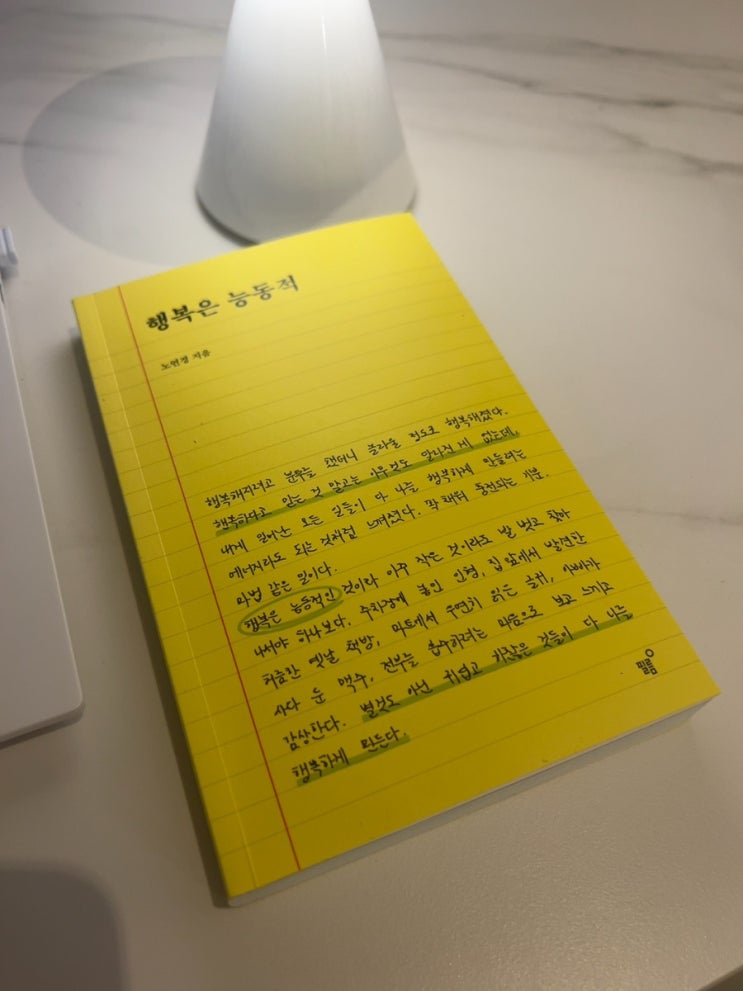 행복은 능동적
노연경 지음
행복해지려고 분위를 했더니 놀라울 정도로 행복해졌다.
행복하다고 믿는 것 말고는 아무것도 달라진 게 없는데,
내게 일어난 모든 일들이 다 나를 행복하게 만들려는
에너지라도 되는 것처럼 느껴졌다. 막 채터 동전되는 기분.
마법 같은 일이다.
행복은 능동적인 것이라 아주 작은 것이라도 발 벗고 찾아
나서야 하나보다. 수화기에 놓인 인형, 집 앞에서 발견한
허름한 옛날 책방, 마트에서 우연히 읽은 글귀, 아빠가
사다 둔 맥주, 전부를 흡수하려는 마음으로 보고 느끼고
감상한다. 별것도 아닌 쉽고 귀찮은 것들이 다 나를
행복하게 만든다.
필름